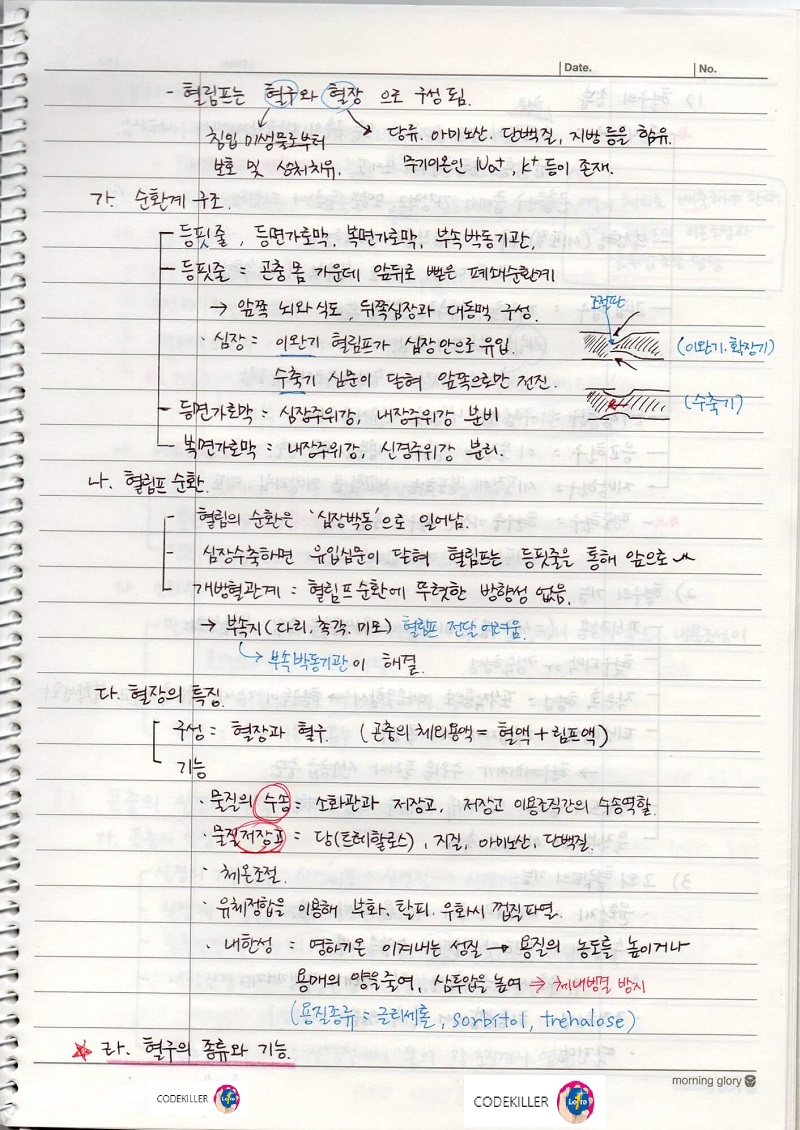 Date.
No.
- 혈림프는 혈구와 혈장 으로 구성 됨.
침입 미생물로부터 당류. 아미노산. 단백질, 지방 등을 함유.
보호 및 상처치유. 무기이온인 Na⁺, K⁺ 등이 존재.
가. 순환계 구조.
등핏줄, 등면가로막, 복면가로막, 부속박동기관,
등핏줄 = 곤충 몸 가운데 앞뒤로 뻗은 폐쇄순환계
→ 앞쪽 뇌와 식도, 뒤쪽심장과 대동맥 구성.
조절판
· 심장 = 이완기 혈림프가 심장안으로 유입.
(이완기·확장기)
수축기 심문이 닫혀 앞쪽으로만 전진.
(수축기)
등면가로막 = 심장주위강, 내장주위강 분비
복면가로막 = 내장주위강, 신경주위강 분리.
나. 혈림프 순환.
혈림의 순환은 '심장박동'으로 일어남.
심장수축하면 유입심문이 닫혀 혈림프는 등핏줄을 통해 앞으로
개방혈관계 = 혈림프순환에 뚜렷한 방향성 없음.
→ 부속지 (다리, 촉각. 미모) 혈림프 전달 어려움.
↳ 부속박동기관이 해결.
다. 혈장의 특징.
구성 = 혈장과 혈구. (곤충의 체외용액 = 혈액 + 림프액)
기능
· 물질의 수송 = 소화관과 저장고, 저장고 이용조직간의 수송역할.
· 물질저장고 = 당(트레할로스), 지질, 아미노산, 단백질.
· 체온조절.
· 유체정합을 이용해 부화. 탈피. 우화시 껍질파열.
· 내한성 = 영하기온 이겨내는 성질 → 용질의 농도를 높이거나
용매의 양을줄여, 삼투압을 높여 → 체내빙결 방지
(용질종류 = 글리세롤, sorbitol, trehalose)
라. 혈구의 종류와 기능.
morning glory
CODEKILLER
CODEKILLER